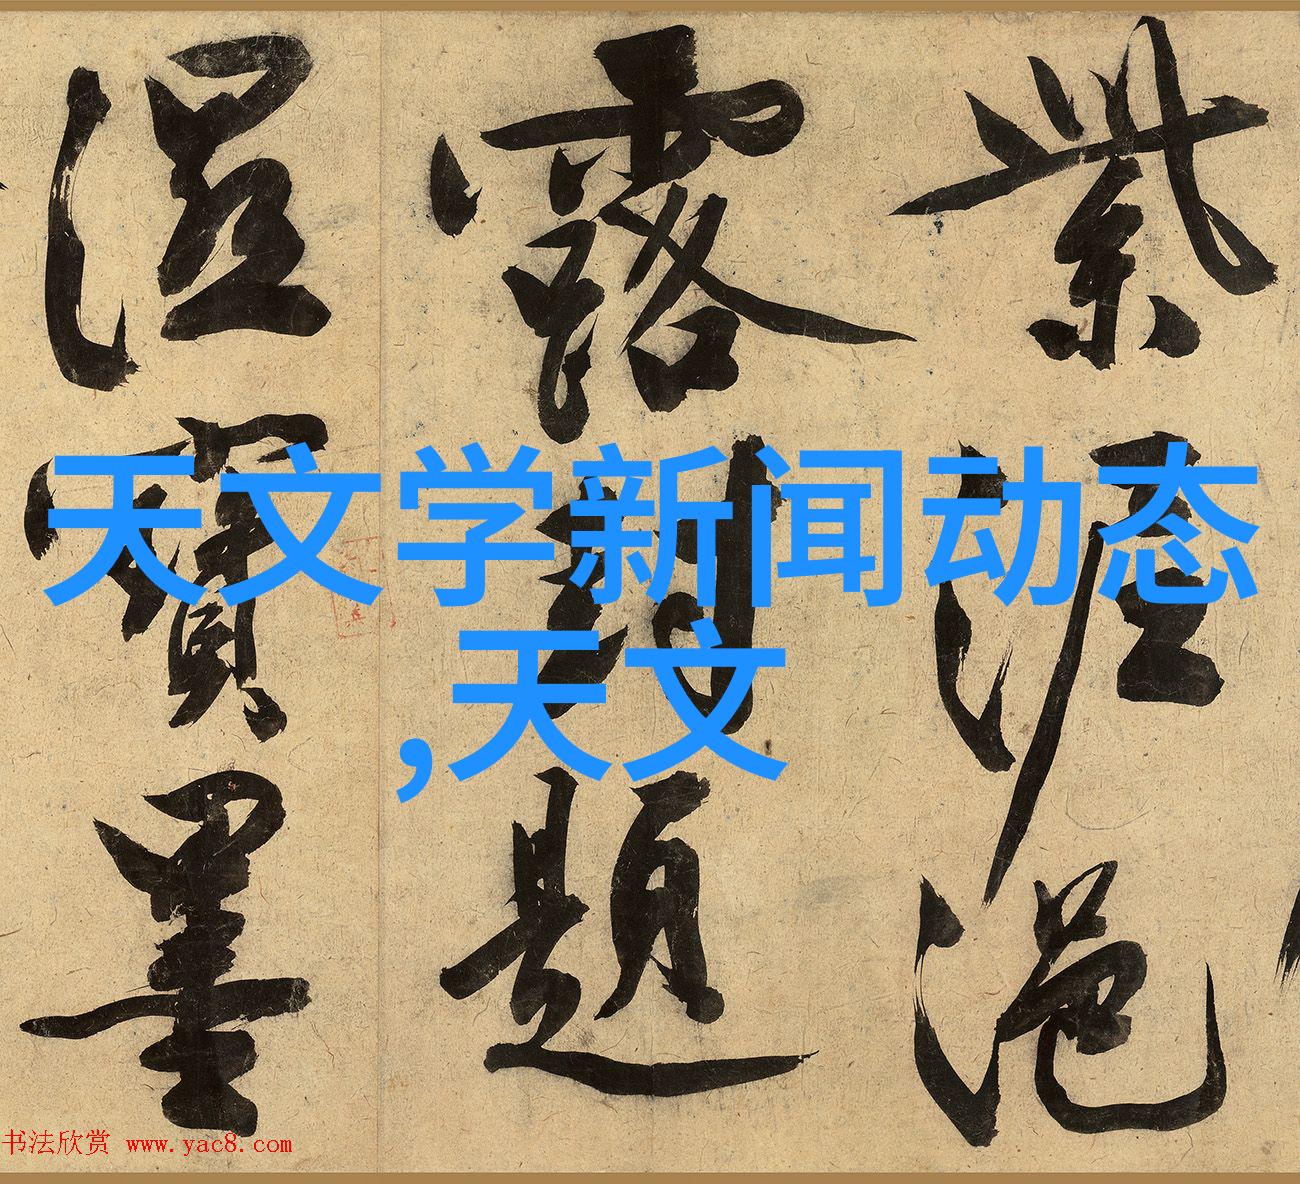 紫泥浥
露封題
湿寶墨
天文学新闻动态
,天文
书法欣赏 www.yac8.com